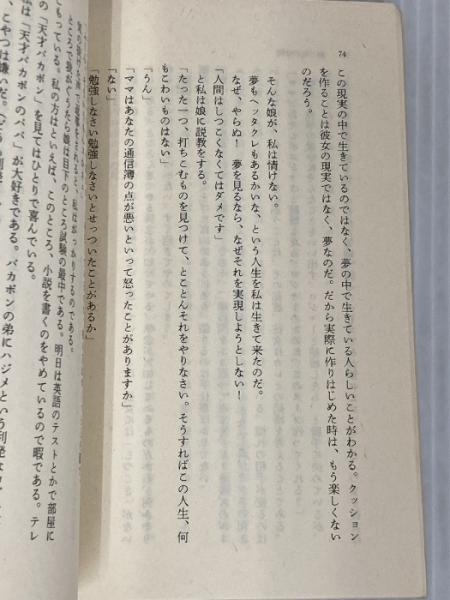 74
この現実の中で生きているのではなく、夢の中で生きている人らしいことがわかる。クッション
を作ることは彼女の現実ではなく、夢なのだ。だから実際に作りはじめた時は、もう楽しくない
のだろう。
そんな娘が、私は情けない。
夢もヘッタクレもあるかいな、という人生を私は生きて来たのだ。
なぜ、やらぬ！　夢を見るなら、なぜそれを実現しようとしない！
「人間はしつこくなくてはダメです」
と私は娘に説教をする。
「たった一つ、打ちこむものを見つけて、とことんそれをやりなさい。そうすればこの人生、何
もこわいものはない」
「うん」
「ママはあなたの通信簿の点が悪いといって怒ったことがありますか」
「ない」
「勉強しなさい勉強しなさいとせっついたことがあるか」
私はがっかりするのである。
ところで我がぐうたら娘は目下のところ試験の最中である。明日は英語のテストとかで部屋に
こもっている。私の方はといえば、このところ、小説を書くのをやめているので暇である。テレ
の「天才バカボン」を見てはひとりで喜んでいる。
私は「天才バカボンのパパ」が大好きである。バカボンの弟にハジメという利発な
こやつは嫌いだ。